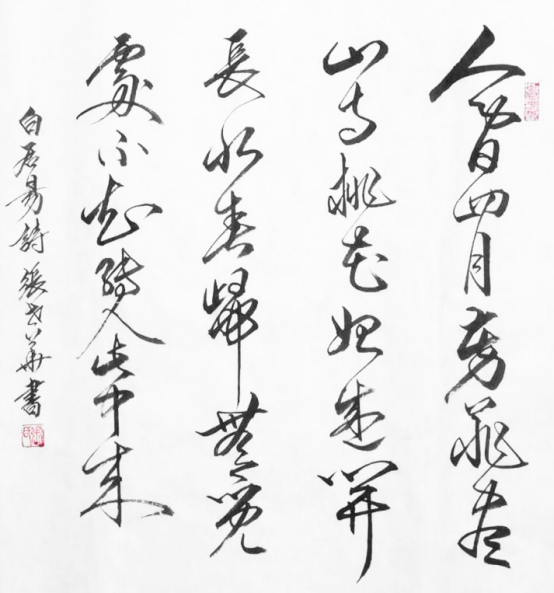 人間四月芳菲盡
山寺桃花始盛開
長恨春歸無覓
處不知轉入此中來
白居易詩 張華書